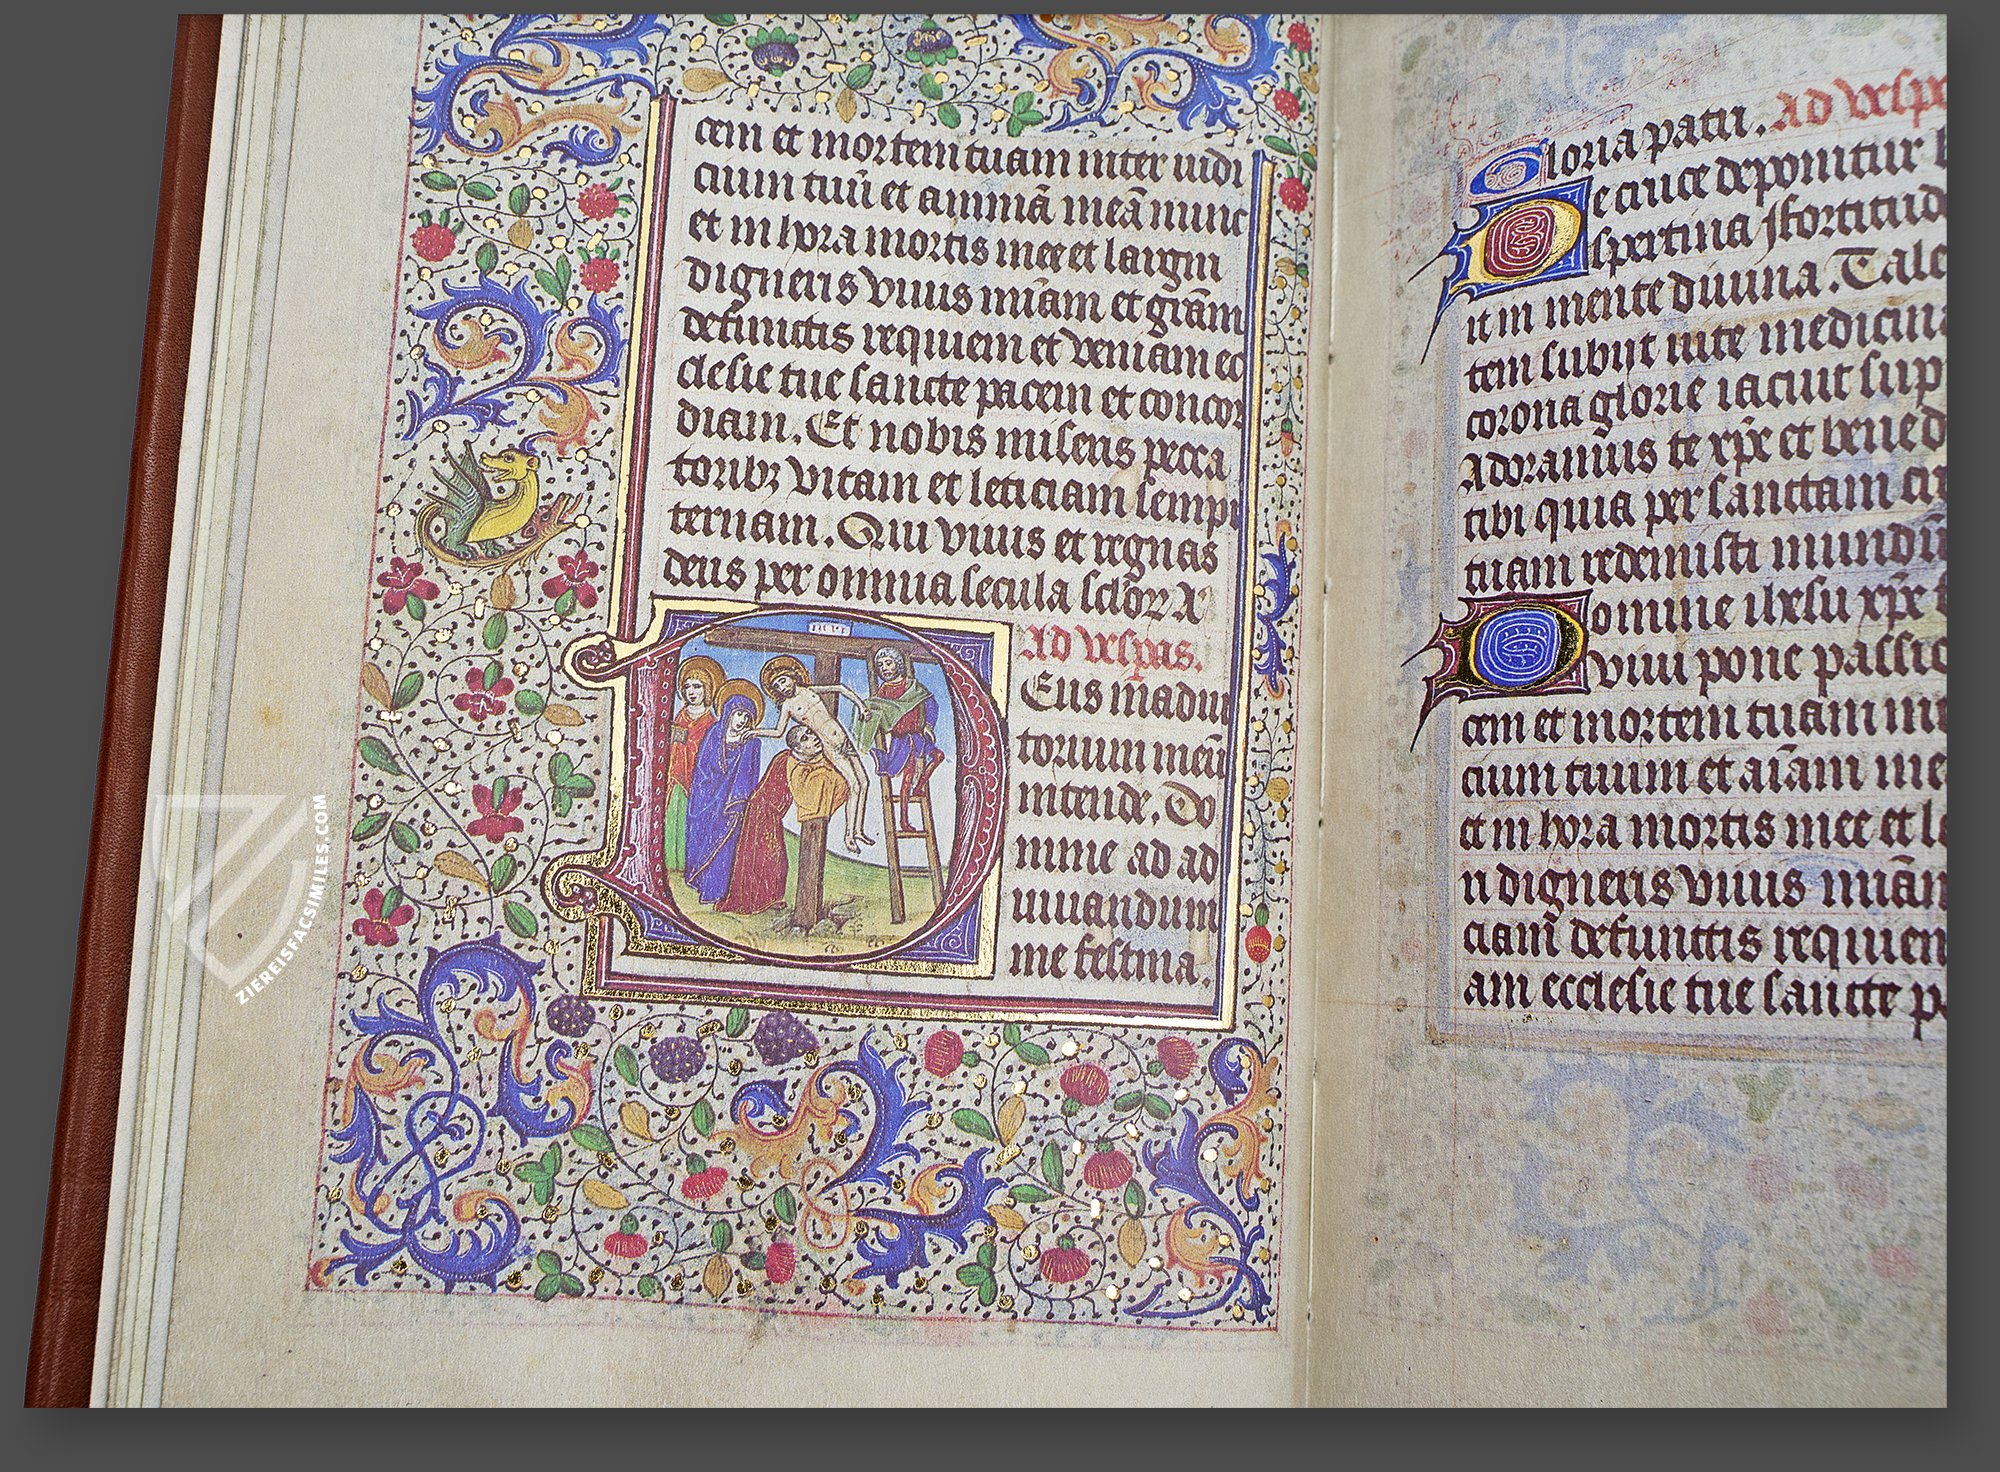 cem et mortem tuam inter iudi
cium tuū et animā meā nunc
et in hora mortis mee et largiri
digneris viuis mīam et grām
defunctis requiem et veniam ec
clesie tue sancte pacem et concor
diam. Et nobis miseris pecca
toribꝫ vitam et leticiam sempi
ternam. Qui viuis et regnas
deus per omnia secula sclorꝝ A
Ad vespas.
Eus in adiu
torium meū
intende. Do
mine ad ad
iuuandum
me festina.
INRI
Gloria patri. Ad vespe
De cruce deponitur
spertina fortitud
it in mente diuina. Tale
tem subijt vite medicina
corona glorie iacuit sup
Adoramus te xp̄e et bened
tibi quia per sanctam cr
tuam redemisti mundū
Domine ihesu xp̄e
viui pone passio
cem et mortem tuam in
cium tuum et aīam me
et in hora mortis mee et la
ri digneris viuis miām
ciam defunctis requiem
am ecclesie tue sancte p
ZIEREISFACSIMILES.COM